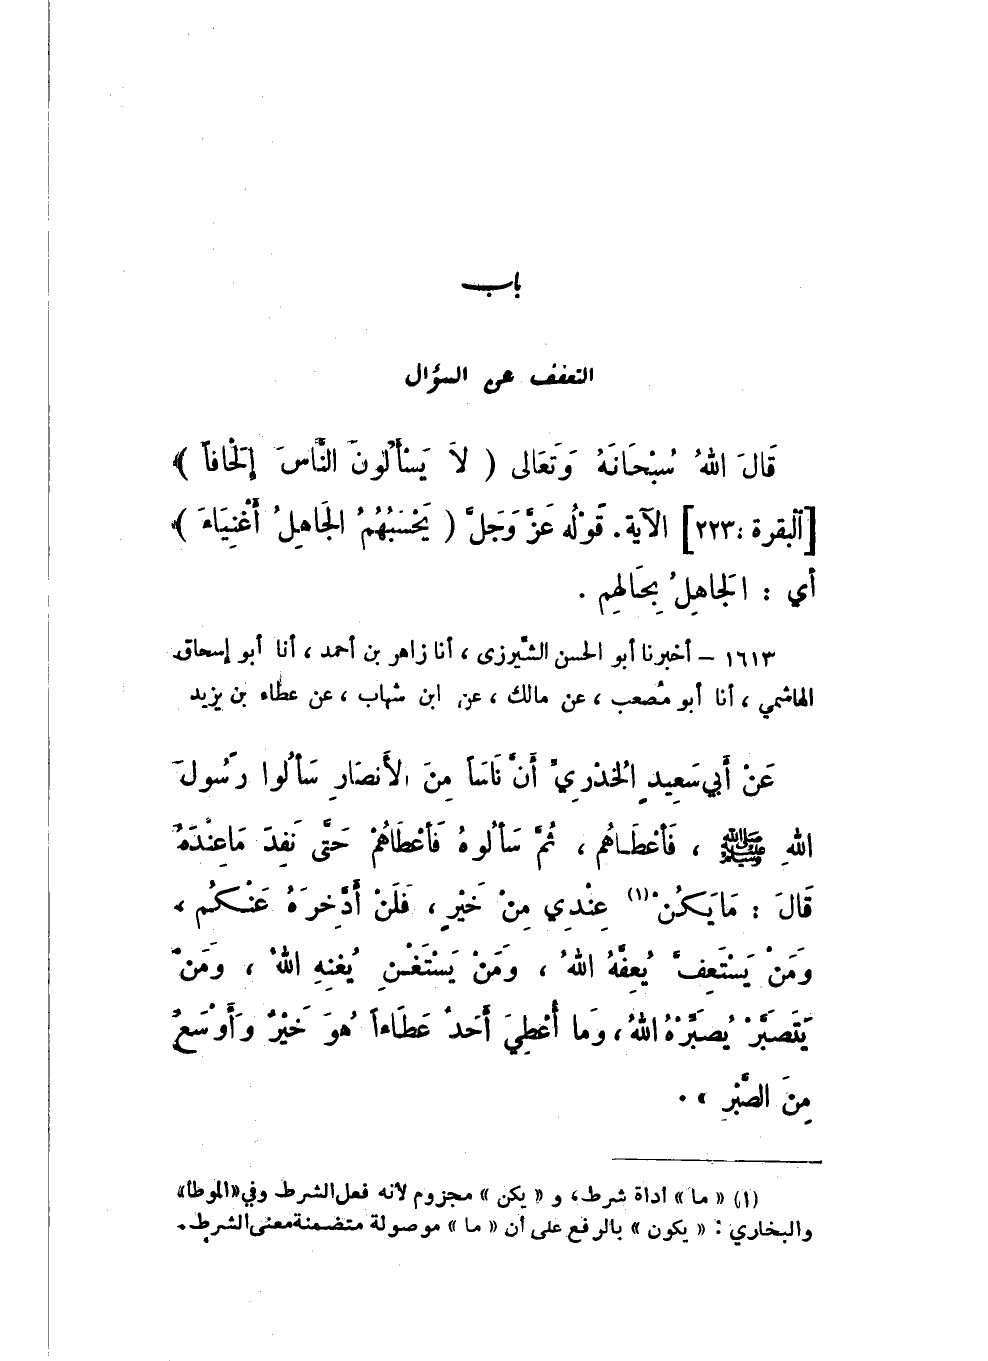 باب
التعفف عن السؤال
قَالَ اللهُ سُبْحَانَهُ وَتَعَالى ( لاَ يَسْأَلُونَ النَّاسَ إِلْحَافاً )
[البقرة : ٢٢٣] الآية. قَوْلُه عَزَّ وَجَلَّ ( يَحْسَبُهُمُ الجَاهِلُ أَغْنِيَاءَ )
أي : الجَاهِلُ بِحَالِهِم .
١٦١٣ – أخبرنا أبو الحسن الشّيرزى ، أنا زاهر بن أحمد ، أنا أبو إسحاق
الهاشمي ، أنا أبو مُصعب ، عن مالك ، عن ابن شهاب ، عن عطاء بن يزيد
عَنْ أَبِي سَعِيدٍ الخُدْرِيِّ أَنَّ نَاسَاً مِنَ الأَنصَارِ سَأَلُوا رَسُولَ
اللهِ ﷺ ، فَأَعْطَاهُم ، ثُمَّ سَأَلُوهُ فَأَعْطَاهُمْ حَتَّى نَفِدَ مَا عِنْدَهُ
قَالَ : مَا يَكُنْ (١) عِنْدِي مِنْ خَيْرٍ ، فَلَنْ أَدَّخِرَهُ عَنْكُم ،
وَمَنْ يَسْتَعِفَّ يُعِفَّهُ اللهُ ، وَمَنْ يَسْتَغْنِ يُغْنِهِ اللهُ ، وَمَنْ
يَتَصَبَّرْ يُصَبِّرْهُ اللهُ ، وَما أُعْطِيَ أَحَدٌ عَطَاءاً هُوَ خَيْرٌ وَأَوْسَعُ
مِنَ الصَّبْرِ » .
(١) « ما » أداة شرط ، و « يكن » مجزوم لأنه فعل الشرط وفي «الموطأ»
والبخاري : « يكون » بالرفع على أن « ما » موصولة متضمنة معنى الشرط .